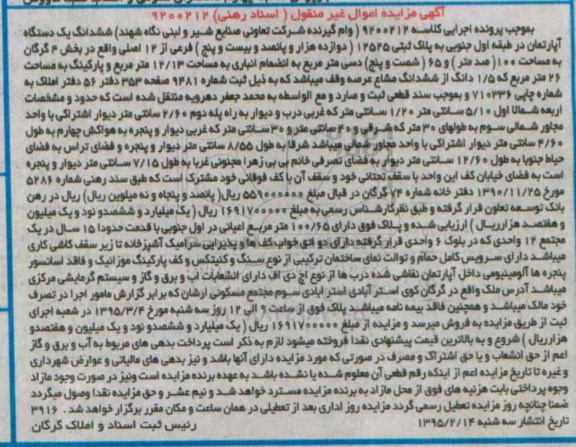 آگهی مزایده اموال غیر منقول ( اسناد رهنی) ۹۲۰۰۲۱۲
بموجب پرونده اجرایی کلاسه ۹۲۰۰۲۱۲ ( وام گیرنده شرکت تعاونی صنایع شیر و لبنی نگاه شهند) ششدانگ یک دستگاه
آپارتمان در طبقه اول جنوبی به پلاک ثبتی ۱۲۵۲۵ ( دوازده هزار و پانصد و بیست و پنج ) فرعی از ۱۲ اصلی واقع در بخش ۴ گرگان
به مساحت ۱۰۰( صد متر ) و ۶۵ ( شصت و پنج) دسی متر مربع به انضمام انباری به مساحت ۱۲/۱۳ متر مربع و پارکینگ به مساحت
۲۶ متر مربع که ۱/۵ دانگ از ششدانگ مشاع عرصه وقف میباشد که به ذیل ثبت شماره ۹۴۸۱ صفحه ۳۵۳ دفتر ۵۶ دفتر املاک به
شماره چاپی ۷۱۰۳۳۶ و بموجب سند قطعی ثبت و صادر و مع الواسطه به محمد جعفر دهرویه منتقل شده است که حدود و مشخصات
اربعه شمالا اول ۵/۱۰ سانتی متر ۱/۲۰ سانتی متر که غربی درب و دیوار به راه پله دوم ۲/۶۰ متر دیوار اشتراکی با واحد
مجاور شمالی سوم به طولهای ۳۰ متر که شرقی و ۲۰ سانتی متر و ۳۰ سانتی متر که غربی دیوار و پنجره به هواکش چهارم به طول
۴/۶۰ متر دیوار اشتراکی با واحد مجاور شمالی میباشد شرقا به طول ۸/۵۵ سانتی متر دیوار و پنجره و فضای تراس به فضای
حیاط جنوبا به طول ۱۲/۶۰ سانتی متر دیوار به فضای تصرفی خانم بی بی زهرا مجنونی غربا به طول ۷/۱۵ سانتی متر دیوار و پنجره
است به فضای خیابان کف این واحد با سقف تحتانی خود و سقف آن با کف فوقانی خود مشترک است که طبق سند رهنی شماره ۵۲۸۶
مورخ ۱۳۹۰/۱۱/۲۵ دفتر خانه شماره ۷۴ گرگان در قبال مبلغ ۵۵۹۰۰۰۰۰۰ ریال( پانصد و پنجاه و نه میلوین ریال) ریال در رهن
بانک توسعه تعاون قرار گرفته و طبق نظر کارشناس رسمی به مبلغ ۱۶۹۱۷۰۰۰۰۰ ریال ( یک میلیارد و ششصدو نود و یک میلیون
و هفتصد هزارریال ) ارزیابی شده و پلاک فوق دارای ۱۰۰/۶۵ متر مربع اعیانی در اول جنوبی با قدمت حدودا ۱۵ سال در یک
مجتمع ۱۲ واحدی که در بلوک ۶ واحدی قرار گرفته دارای دو اتق خواب کف ها و پذیرایی سرامیک آشپزخانه تا زیر سقف کاشی کاری
میباشد دارای سرویس کامل حمام و توالت نمای ساختمان ترکیبی از نوع سنگ و کنیتکس و کف پارکینگ موزائیک و فاقد آسانسور
پنجره ها آلومینیومی داخل آپارتمان نقاشی شده درب ها از نوع اچ دی اف دارای انشعابات آب و برق و گاز و سیستم گرمایشی مرکزی
میباشد آدرس ملک واقع در گرگان کوی استر آبادی استر ابادی سوم مجتمع مسکونی ارشان که برابر گزارش مامور اجرا در تصرف
خود مالک میباشد و همچنین فاقد بیمه نامه میباشد پلاک فوق از ساعت ۹ الی ۱۲ روز سه شنبه مورخ ۱۳۹۵/۳/۴ در شعبه اجرای
ثبت از طریق مزایده به فروش میرسد و مزایده از مبلغ ۱۶۹۱۷۰۰۰۰۰ ریال ( یک میلیارد و ششصدو نود و یک میلیون و هفتصدو
هزارریال ) شروع و به بالاترین قیمت پیشنهادی نقدا فروخته میشود لازم به ذکر است پرداخت بدهی های مربوط به آب و برق و گاز
اعم از حق انشعاب و یا حق اشتراک و مصرف در صورتی که مورد مزایده دارای آنها باشد و نیز بدهی های مالیاتی و عوارض شهرداری
و غیره تا تاریخ مزایده اعم از اینکه رقم قطعی آن معلوم شده یا نشده باشد به عهده برنده مزایده است ونیز در صورت وجود مازاد
وجوه پرداختی بابت هزینه های فوق از محل مازاد به برنده مزایده مسترد خواهد شد و نیم عشر و حق مزایده نقدا وصول میگردد
ضمنا چنانچه روز مزایده تعطیل رسمی گردد مزایده روز اداری بعد از تعطیلی در همان ساعت و مکان مقرر برگزار خواهد شد . ۳۹۱۶
تاریخ انتشار سه شنبه ۱۳۹۵/۲/۱۴
رئیس ثبت اسناد و املاک گرگان